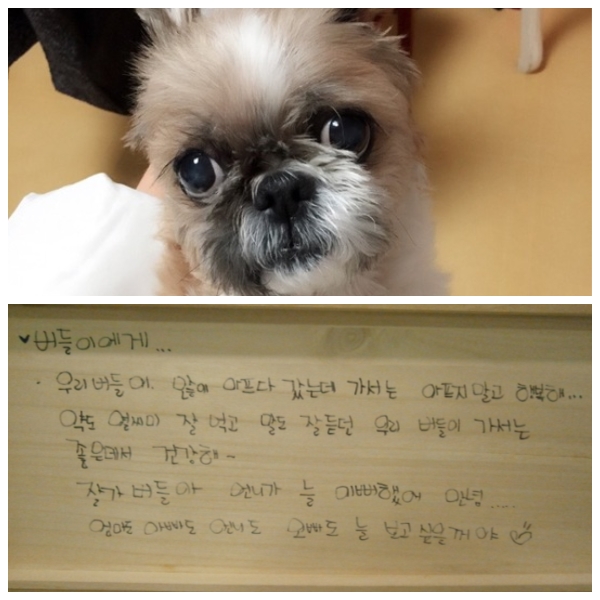 ♥버들이에게...
· 우리버들이. 앞에 아프다 갔는데 가서는 아프지말고 행복해...
약도 열씨미 잘 먹고 말도 잘듣던 우리 버들이 가서는
좋은데서 건강해~
잘가 버들아 언니가 늘 이뻐했어 안녕.....
엄마도 아빠도 언니도 오빠도 늘 보고싶을꺼야♡